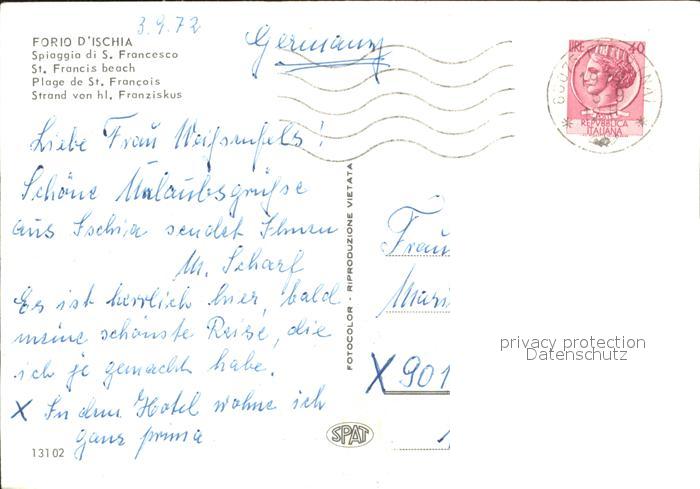 3.9.72
Germany
FORIO D'ISCHIA
Spiaggia di S. Francesco
St. Francis beach
Plage de St. François
Strand von hl. Franziskus
LIRE 40
POSTE
REPVBBLICA
ITALIANA
Liebe Frau Weißenfels!
Schöne Urlaubsgrüße
aus Ischia sendet Ihnen
M. Scharf
Es ist herrlich hier, bald
meine schönste Reise, die
ich je gemacht habe.
X In dem Hotel wohne ich
ganz prima
13102
FOTOCOLOR - RIPRODUZIONE VIETATA
SPAT
Frau
Mari
X 901
privacy protection
Datenschutz